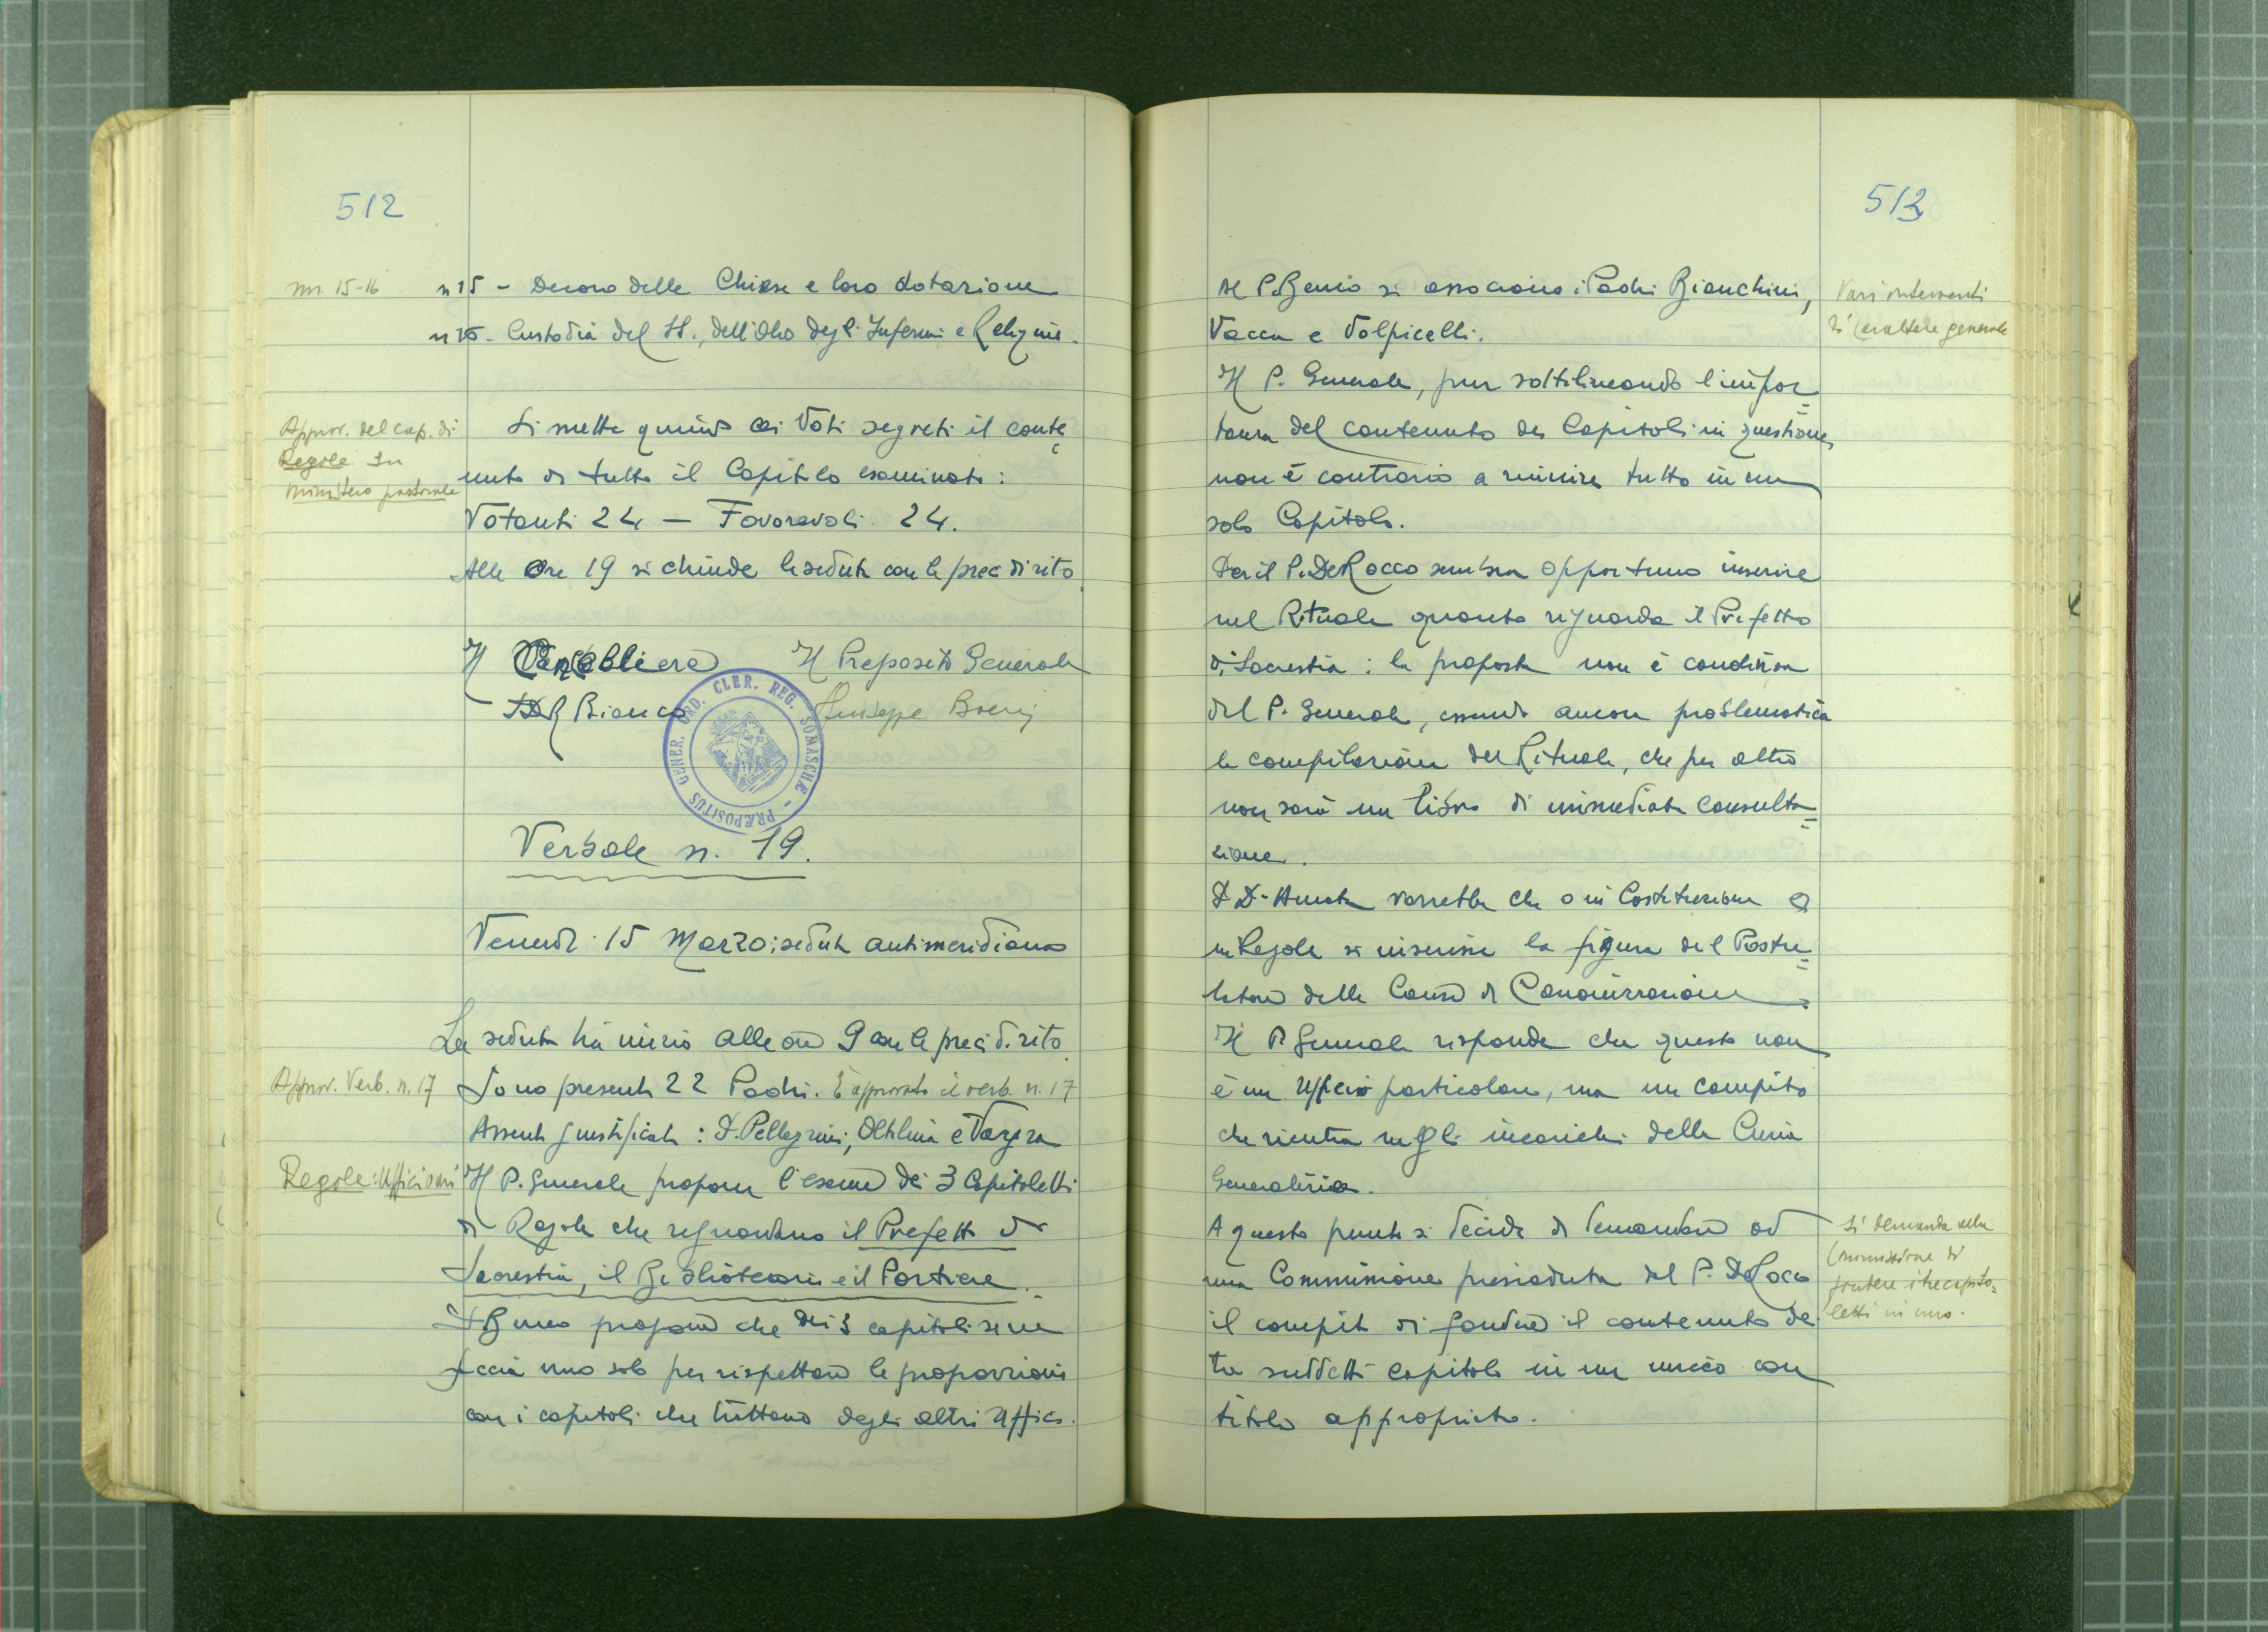 512
nn. 15-16
n 15 - Decoro delle Chiese e loro dotazione
n 16 - Custodia del SS., dell'Olio degli Infermi e Reliquie.
Approv. del cap. di
Regole su
ministero pastorale
Si mette quindi ai Voti segreti il conte
nuto di tutto il Capitolo esaminato:
Votanti 24 — Favorevoli 24.
Alle Ore 19 si chiude la seduta con le preci di rito.
Il Cancelliere Il Preposito Generale
Bianco Giuseppe Boeris
PRÆPOSITUS GENER. ORD. CLER. REG. SOMASCHÆ -
Verbale n. 19.
Venerdì 15 Marzo: seduta antimeridiana
La seduta ha inizio alle ore 9 con le preci di rito.
Approv. Verb. n. 17
Sono presenti 22 Padri. È approvato il verb. n. 17
Assenti giustificati: P. Pellegrini, Oltolina e
Regole: Ufficiali
Il P. Generale propone l'esame dei 3 Capitoletti
di Regole che riguardano il Prefetto di
Sacrestia, il Bibliotecario e il Portiere.
propone che dei 3 capitoli se ne
faccia uno solo per rispettare le proporzioni
con i capitoli che trattano degli altri Uffici.
513
Vari interventi
di carattere generale
Al P. si associano i Padri Bianchini,
Vacca e Volpicelli.
Il P. Generale, pur sottolineando l'impor=
tanza del contenuto dei Capitoli in questione,
non è contrario a riunire tutto in un
solo Capitolo.
Per il P. De Rocco sembra opportuno inserire
nel Rituale quanto riguarda il Prefetto
di Sacrestia: la proposta non è condivisa
dal P. Generale, essendo ancora problematica
la compilazione del Rituale, che per altro
non sarà un libro di immediata consulta=
zione.
P. D'Amato vorrebbe che o in Costituzione o
in Regole si inserisse la figura del Postu=
latore delle Cause di Canonizzazione.
Il P. Generale risponde che questo non
è un Ufficio particolare, ma un compito
che rientra negli incarichi della Curia
Generalizia.
A questo punto si decide di demandare ad
una Commissione presieduta dal P. De Rocco
il compito di fondere il contenuto de
tre suddetti capitoli in un unico con
titolo appropriato.
Si demanda alla
Commissione di
fondere i tre capito=
letti in uno.